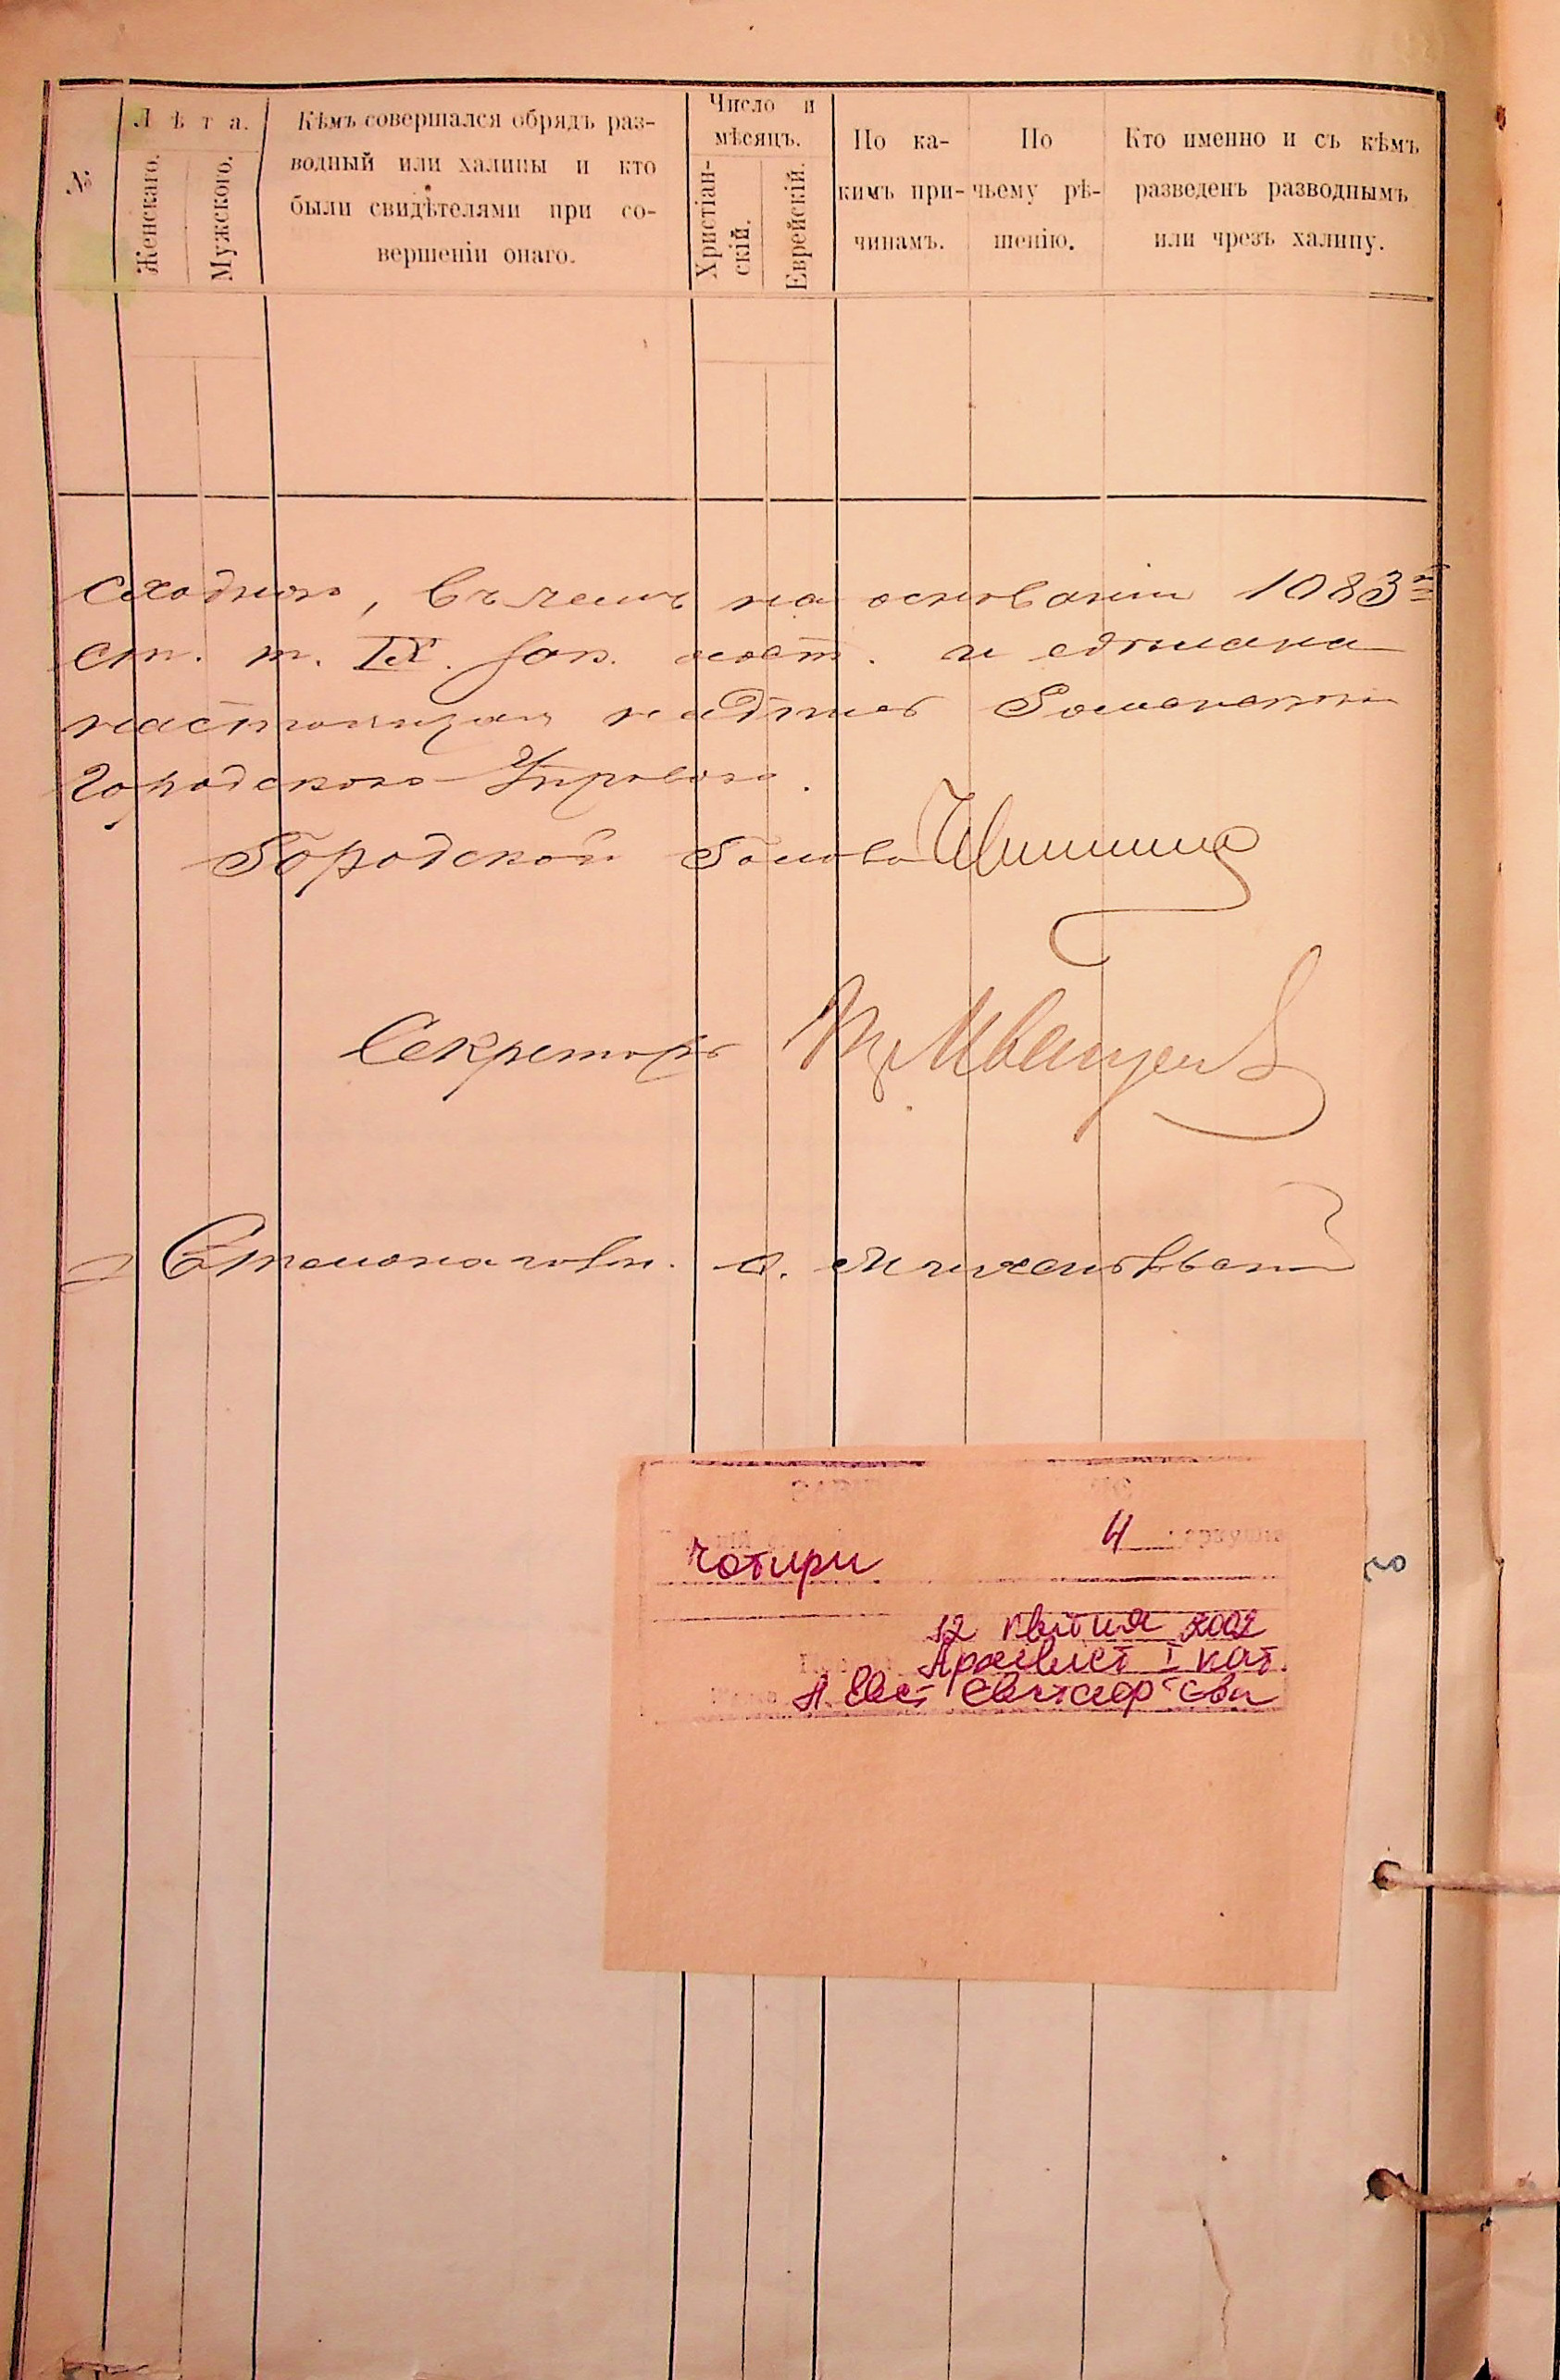 №
Лѣта.
Женскаго.
Мужскаго.
Кѣмъ совершался обрядъ раз-
водный или халицы и кто
были свидѣтелями при со-
вершеніи онаго.
Число и
мѣсяцъ.
Христіан-
скій.
Еврейскій.
По ка-
кимъ при-
чинамъ.
По
чьему рѣ-
шенію.
Кто именно и съ кѣмъ
разведенъ разводнымъ
или чрезъ халицу.
сходно, въ чемъ на основаніи 1083й
ст. т. IX. Зак. сост. и сдѣлана
настоящая надпись Роменскою
Городскою Управою.
Городской Голова
Секретарь
Столоначальн.
чотири 4
12 квітня 2002
Архівіст І кат.